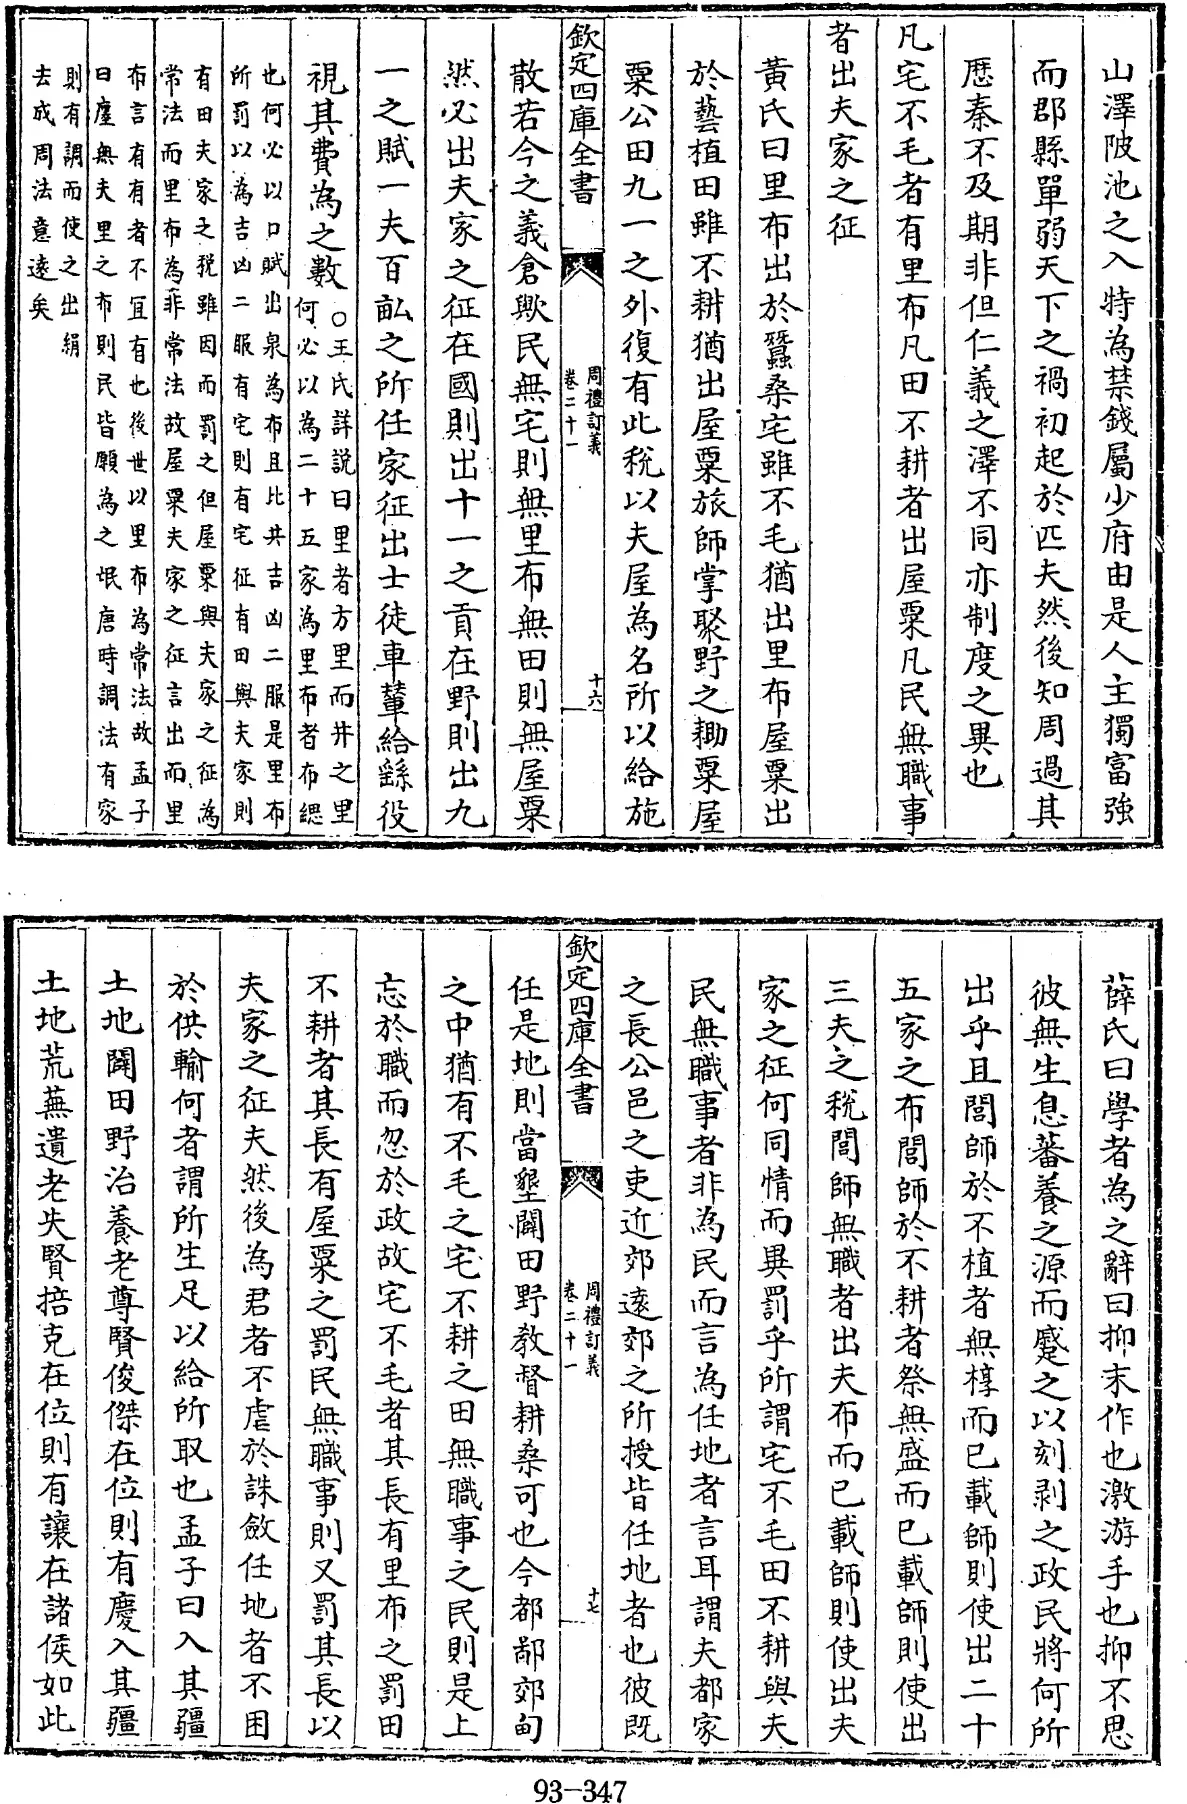 山澤陂池之入特為禁錢屬少府由是人主獨富強
而郡縣單弱天下之禍初起於匹夫然後知周過其
歴秦不及期非但仁義之澤不同亦制度之異也
凡宅不毛者有里布凡田不耕者出屋粟凡民無職事
者出夫家之征
黄氏曰里布出於蠶桑宅雖不毛猶出里布屋粟出
於藝植田雖不耕猶出屋粟旅師掌聚野之耡粟屋
粟公田九一之外復有此税以夫屋為名所以給施
欽定四庫全書
周禮訂義
卷二十一
十六
散若今之義倉歟民無宅則無里布無田則無屋粟
然必出夫家之征在國則出十一之貢在野則出九
一之賦一夫百畝之所任家征出士徒車輦給繇役
視其費為之數
○王氏詳説曰里者方里而井之里
何必以為二十五家為里布者布緦
也何必以口賦出泉為布且比共吉凶二服是里布
所罰以為吉凶二服有宅則有宅征有田與夫家則
有田夫家之税雖因而罰之但屋粟與夫家之征為
常法而里布為非常法故屋粟夫家之征言出而里
布言有有者不宜有也後世以里布為常法故孟子
曰廛無夫里之布則民皆願為之氓唐時調法有家
則有調而使之出絹
去成周法意遠矣
薛氏曰學者為之辭曰抑末作也激游手也抑不思
彼無生息蕃養之源而蹙之以刻剥之政民將何所
出乎且閭師於不植者無椁而已載師則使出二十
五家之布閭師於不耕者祭無盛而已載師則使出
三夫之税閭師無職者出夫布而已載師則使出夫
家之征何同情而異罰乎所謂宅不毛田不耕與夫
民無職事者非為民而言為任地者言耳謂夫都家
之長公邑之吏近郊遠郊之所授皆任地者也彼既
欽定四庫全書
周禮訂義
卷二十一
十七
任是地則當墾闢田野教督耕桑可也今都鄙郊甸
之中猶有不毛之宅不耕之田無職事之民則是上
忘於職而忽於政故宅不毛者其長有里布之罰田
不耕者其長有屋粟之罰民無職事則又罰其長以
夫家之征夫然後為君者不虐於誅斂任地者不困
於供輸何者謂所生足以給所取也孟子曰入其疆
土地闢田野治養老尊賢俊傑在位則有慶入其疆
土地荒蕪遺老失賢掊克在位則有讓在諸侯如此
93-347